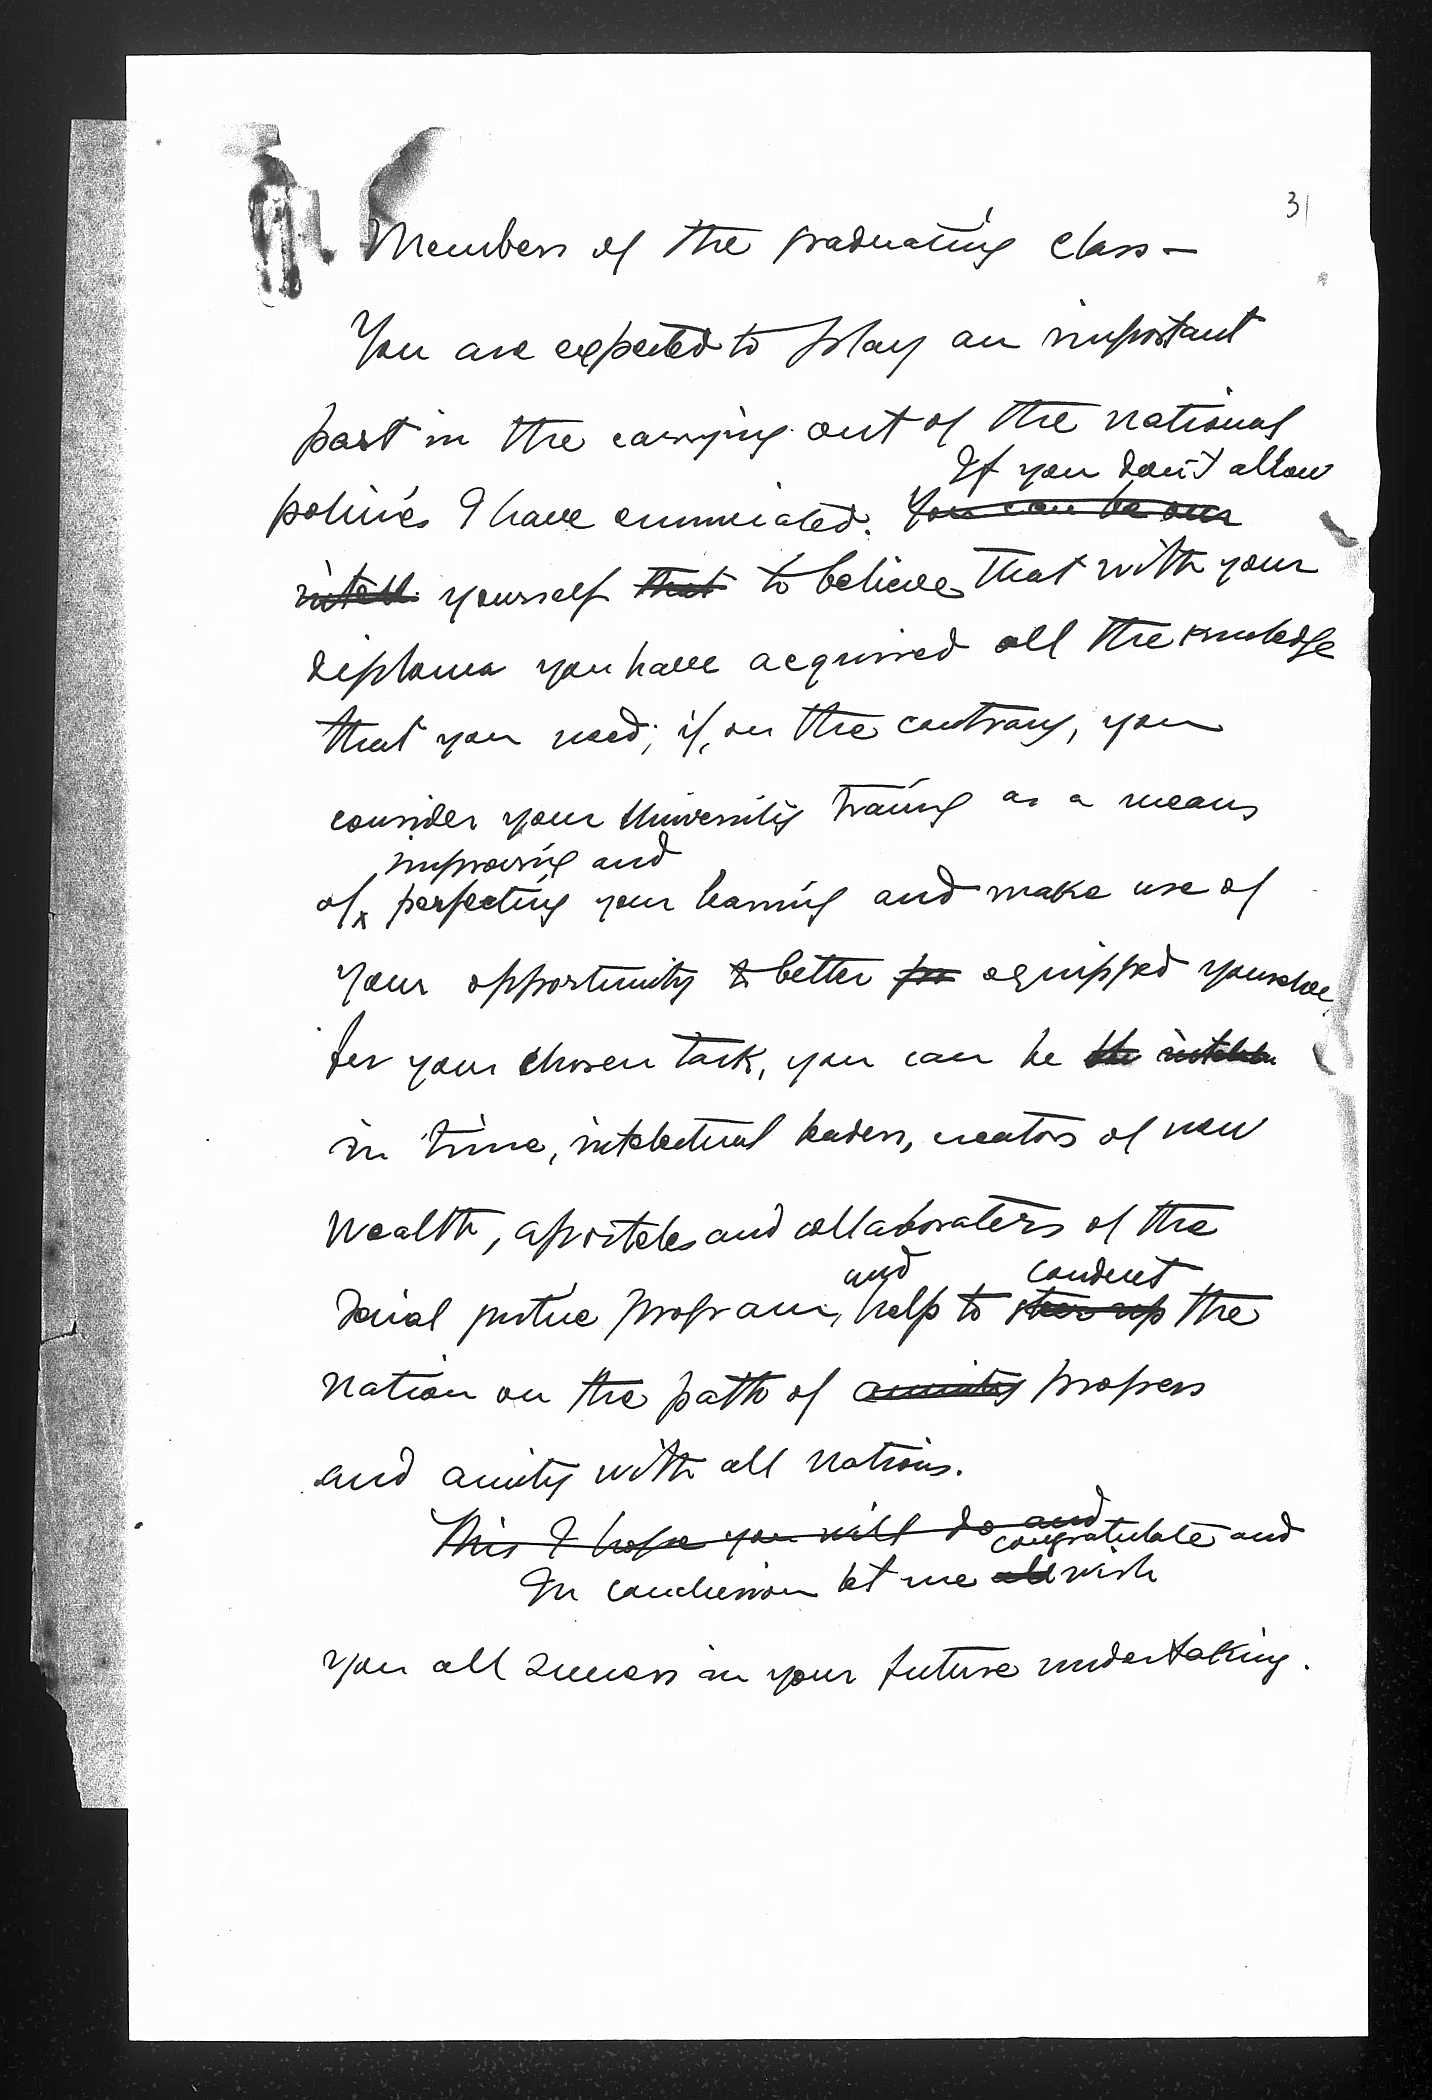 31
Members of the graduating class —
You are expected to play an important
part in the carrying out of the national
If you don't allow
policies I have enunciated. You can be our
intell. yourself that to believe that with your
diploma you have acquired all the knowledge
that you need; if, on the contrary, you
consider your University training as a means
improving and
of perfecting your learning and make use of
your opportunity to better equipped yourselve
for your chosen task, you can be the
in time, intelectual leaders, creators of new
wealth, aposteles and collaborators of the
and conduct
social justice program, help to steer up the
nation on the path of amity progress
and amity with all nations.
This I hope you will do and
congratulate and
In conclusion let me add wish
you all success in your future undertaking.